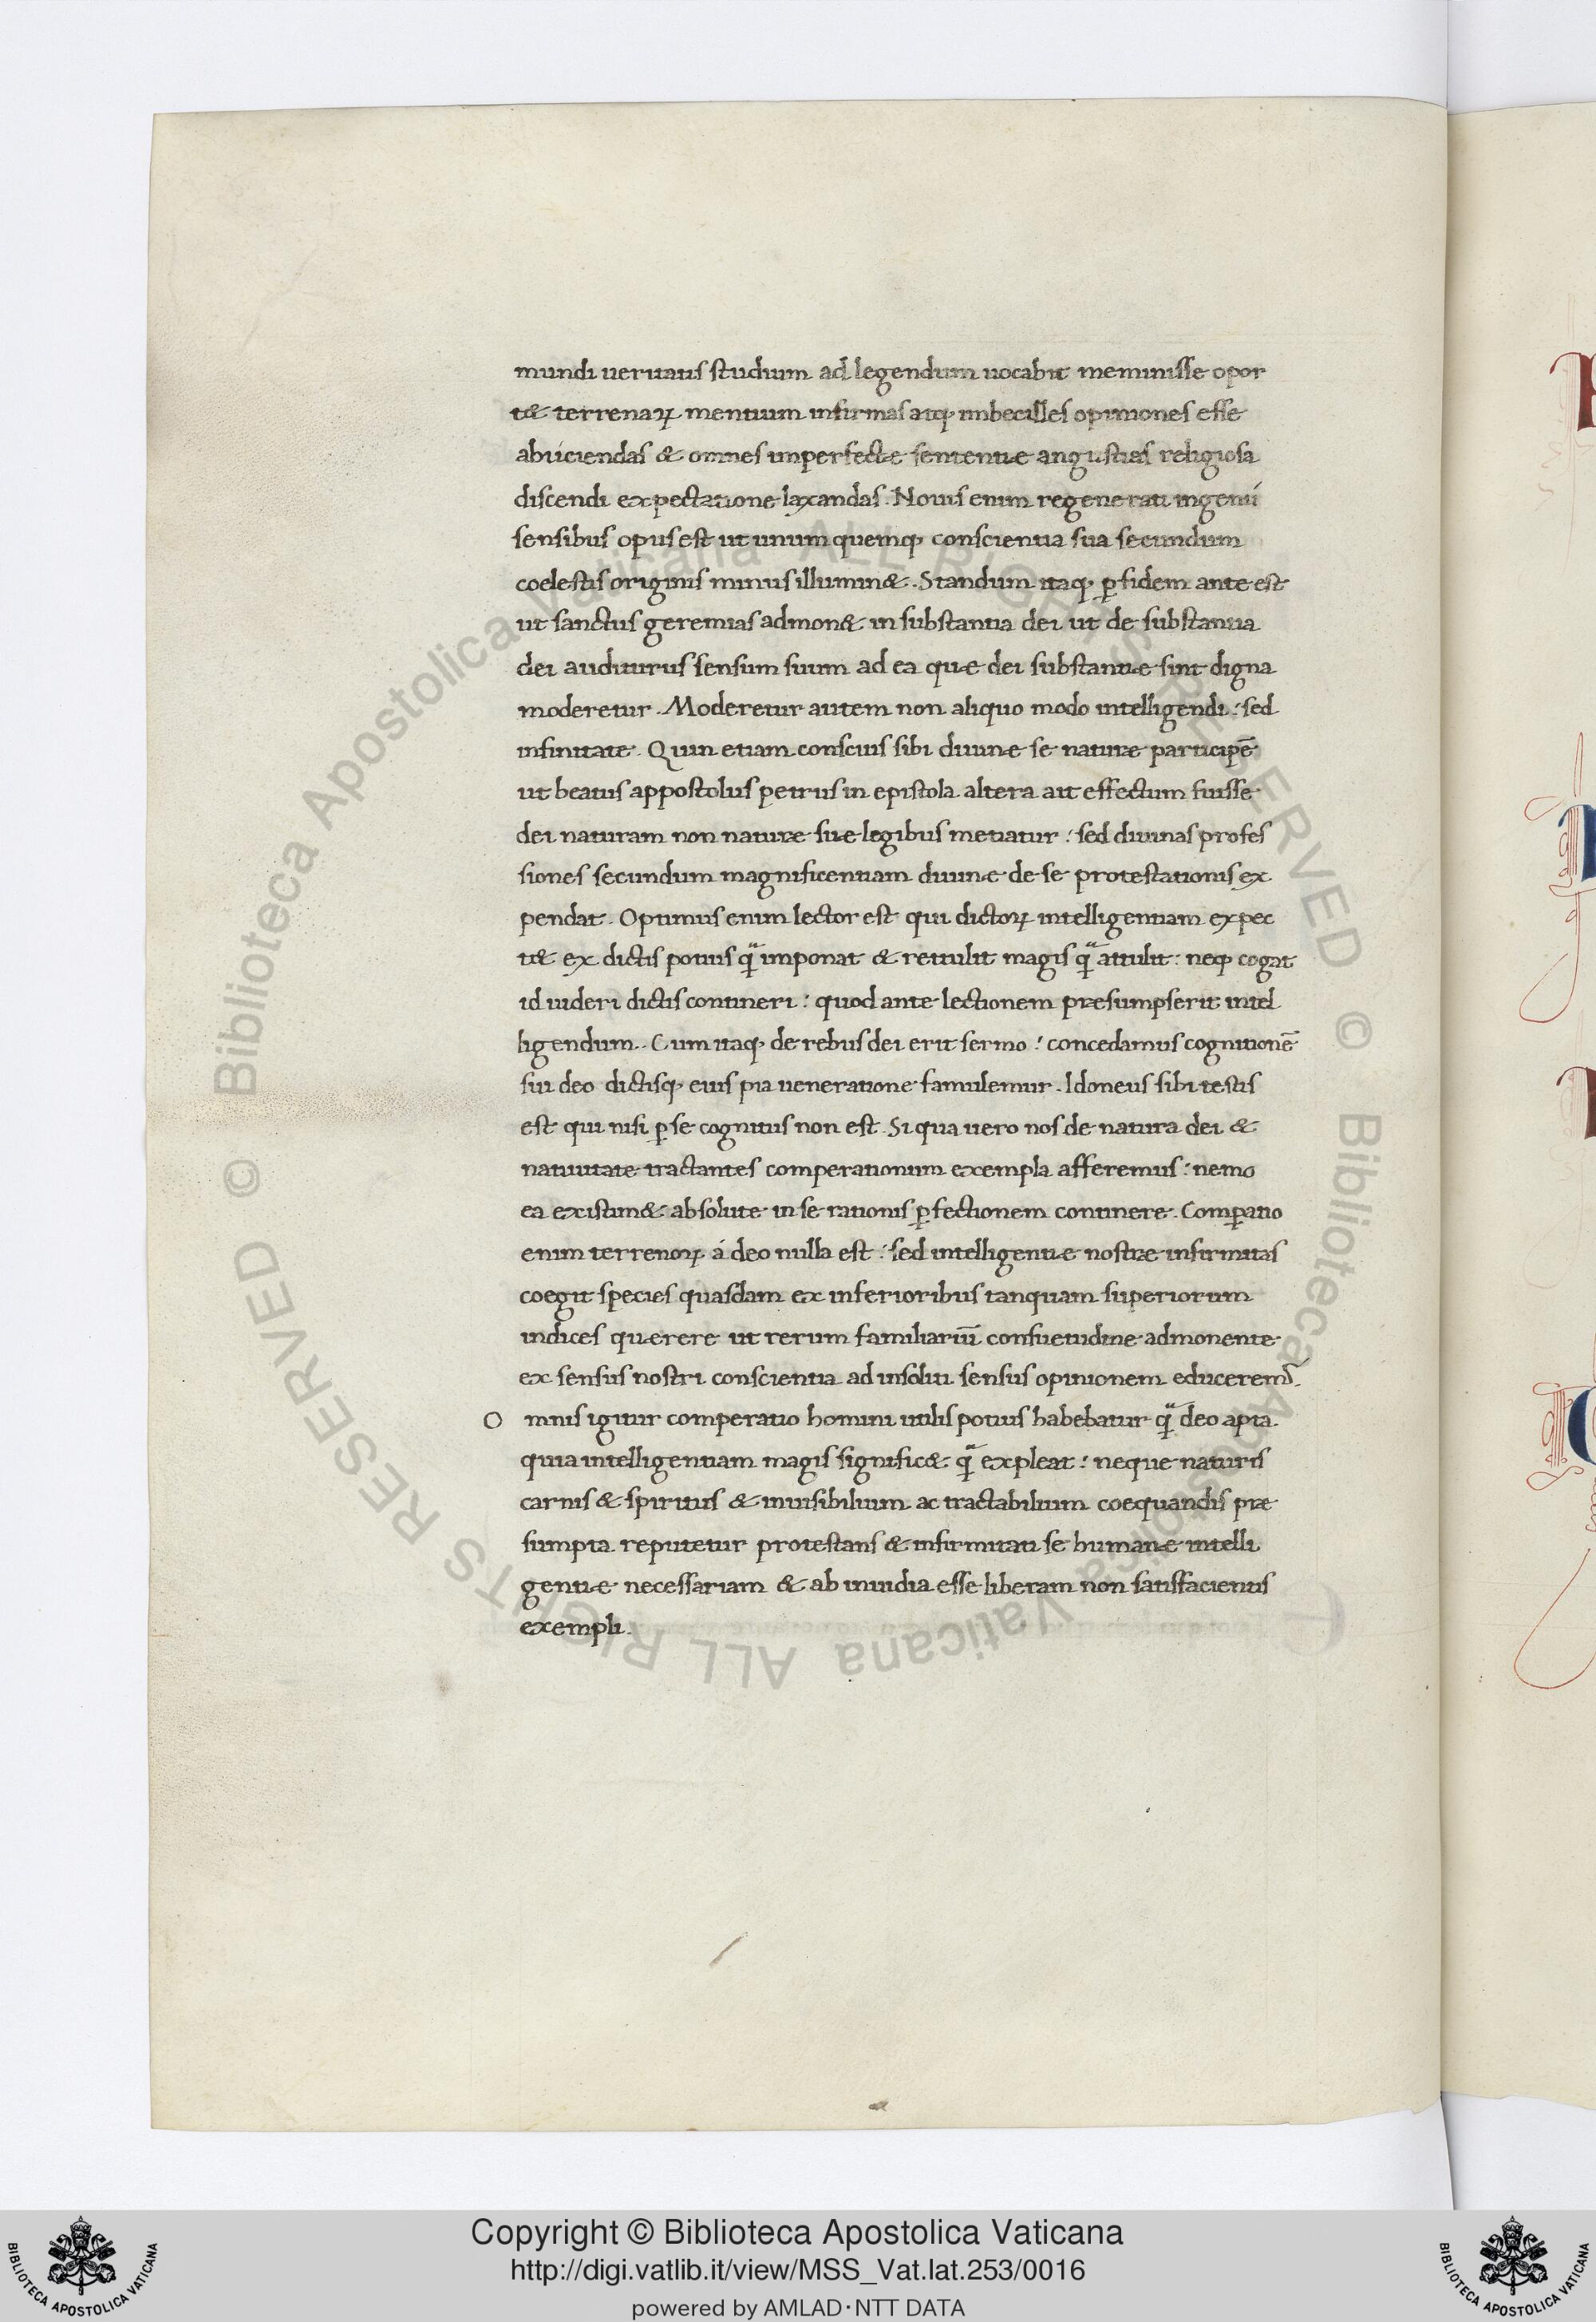 mundi ueritatis studium ad legendum uocabit meminisse opor
t& terrenaꝝ mentium infirmas atq; imbecilles opiniones esse
abiiciendas & omnes imperfectæ sententiæ angustias religiosa
discendi expectatione laxandas. Nouis enim regenerati ingenii
sensibus opus est ut unum quemq; conscientia sua secundum
coelestis originis minus illumin&. Standum itaq; ꝑ fidem ante est
ut sanctus geremias admon& in substantia dei ut de substantia
dei auditurus sensum suum ad ea quæ dei substantiæ sint digna
moderetur. Moderetur autem non aliquo modo intelligendi: sed
infinitate. Quin etiam conscius sibi diuinæ se naturæ participē
ut beatus appostolus petrus in epistola altera ait effectum fuisse
dei naturam non naturæ suæ legibus metiatur: sed diuinas profes
siones secundum magnificentiam diuinæ de se protestationis ex
pendat. Optimus enim lector est qui dictoꝝ intelligentiam expec
t& ex dictis potius q̃ imponat & retulit magis q̃ attulit: neq; cogat
id uideri dictis contineri: quod ante lectionem præsumpserit intel
ligendum. Cum itaq; de rebus dei erit sermo: concedamus cognitionē
sui deo dictisq; eius pia ueneratione famulemur. Idoneus sibi testis
est qui nisi ꝑ se cognitus non est. Si qua uero nos de natura dei &
natiuitate tractantes comperationum exempla afferemus: nemo
ea existim& absolute in se rationis ꝑfectionem continere. Comꝑatio
enim terrenoꝝ á deo nulla est: sed intelligentiæ nostræ infirmitas
coegit species quasdam ex inferioribus tanquam superiorum
indices quærere ut rerum familiariū consuetudine admonente
ex sensus nostri conscientia ad insoliti sensus opinionem educeremꝰ.
O mnis igitur comperatio homini utilis potius habebatur q̃ deo apta
quia intelligentiam magis signific& q̃ expleat: neque naturis
carnis & spiritus & inuisibilium ac tractabilium coequandis præ
sumpta reputetur protestans & infirmitati se humanæ intelli
gentiæ necessariam & ab inuidia esse liberam non satisfacientis
exempli.
© Biblioteca Apostolica Vaticana ALL RIGHTS RESERVED
© Biblioteca Apostolica Vaticana ALL RIGHTS RESERVED
Copyright © Biblioteca Apostolica Vaticana
http://digi.vatlib.it/view/MSS_Vat.lat.253/0016
powered by AMLAD·NTT DATA
BIBLIOTECA APOSTOLICA VATICANA
BIBLIOTECA APOSTOLICA VATICANA